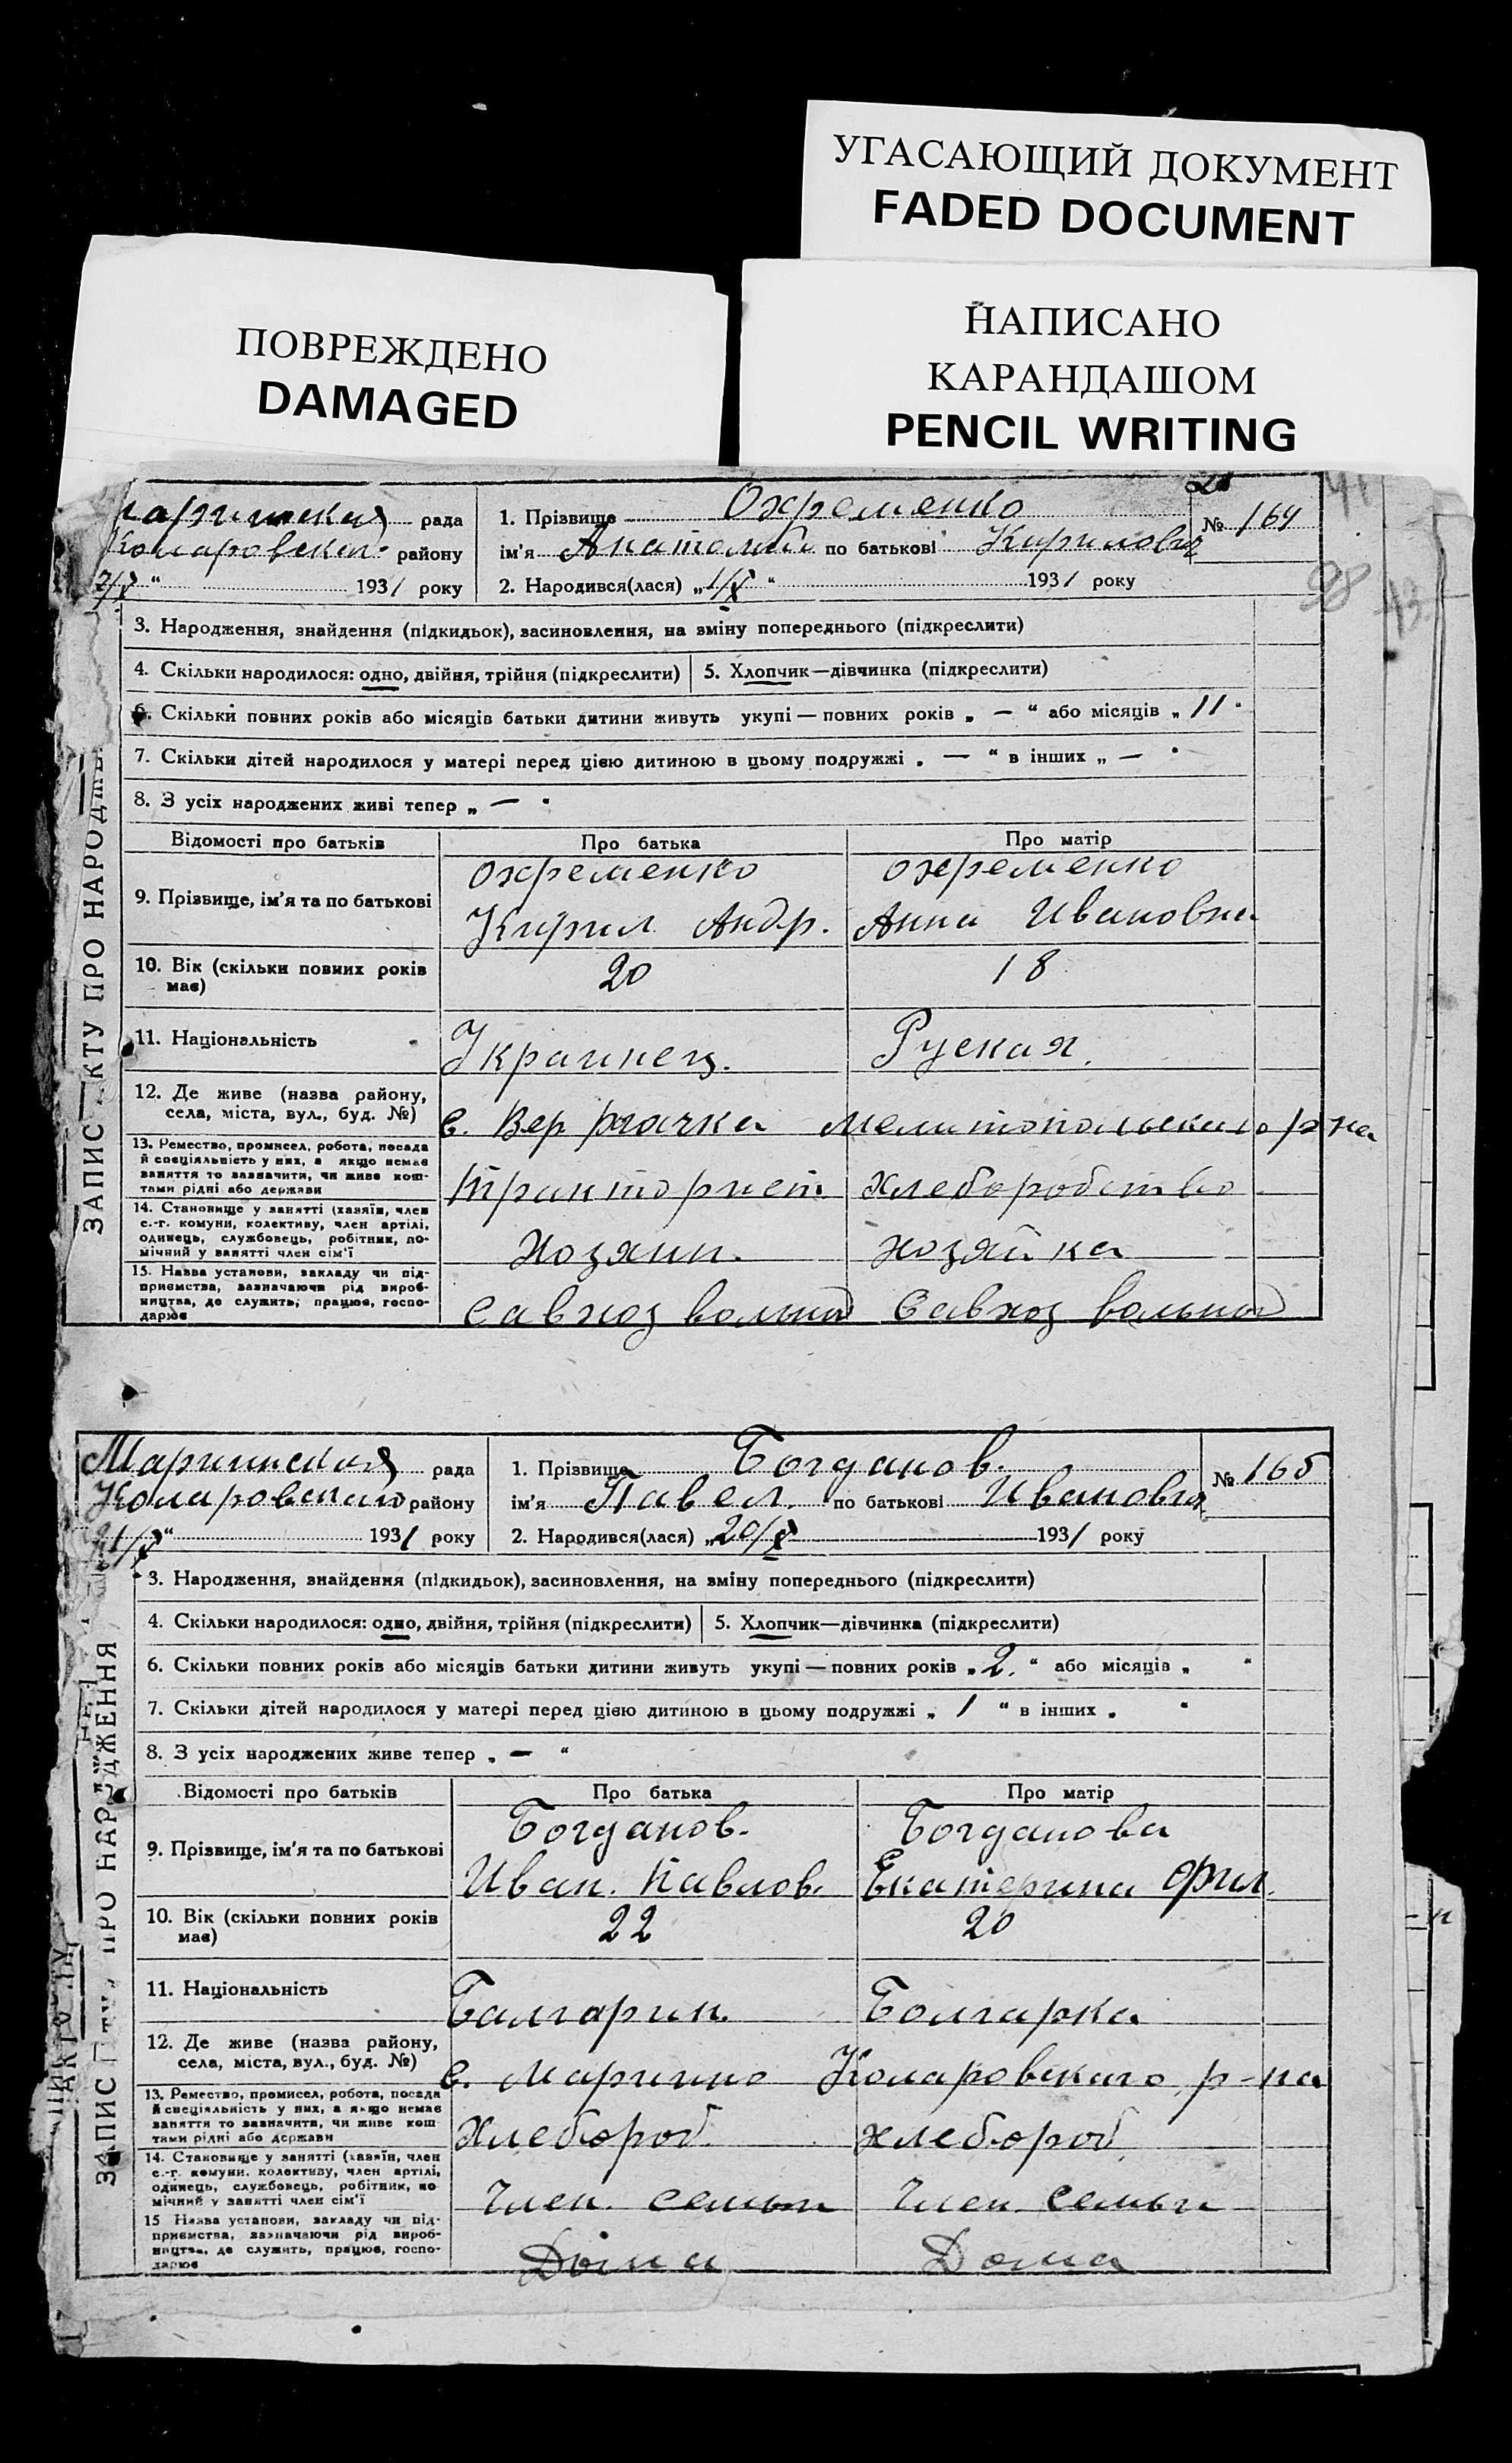 УГАСАЮЩИЙ ДОКУМЕНТ
FADED DOCUMENT
ПОВРЕЖДЕНО
DAMAGED
НАПИСАНО
КАРАНДАШОМ
PENCIL WRITING
рада
району
1931 року
1. Прізвище Охременко
ім'я Анатолий по батькові Кирилович
№ 164
2. Народився(лася) „1/X“ 1931 року
98
3. Народження, знайдення (підкидьок), засиновлення, на зміну попереднього (підкреслити)
4. Скільки народилося: одно, двійня, трійня (підкреслити) 5. Хлопчик—дівчинка (підкреслити)
6. Скільки повних років або місяців батьки дитини живуть укупі — повних років „ — “ або місяців „ 11 “
7. Скільки дітей народилося у матері перед цією дитиною в цьому подружжі „ — “ в інших „ — “
8. З усіх народжених живі тепер „ — “
Відомості про батьків Про батька Про матір
9. Прізвище, ім'я та по батькові
Охременко Охременко
Кирил Андр. Анна Ивановна
10. Вік (скільки повних років має) 20 18
11. Національність Украинец. Руская.
12. Де живе (назва району, села, міста, вул., буд. №)
с. Вер рогачка Мелитопольскаго р-на
13. Ремество, промисел, робота, посада й спеціяльність у них, а якщо немає заняття то зазначити, чи живе коштами рідні або держави
Тракторист Хлеборобство
14. Становище у занятті (хазяїн, член с.-г. комуни, колективу, член артілі, одинець, службовець, робітник, помічний у занятті член сім'ї
Хозяин. Хозяйка
15. Назва установи, закладу чи підприємства, зазначаючи рід виробництва, де служить, працює, господарює
Савхоз вольный Савхоз вольный
ЗАПИС КТУ ПРО НАРОДЖЕ
Мариинская рада
Коларовского району
21/X“ 1931 року
1. Прізвище Богданов.
ім'я Павел. по батькові Иванович
№ 165
2. Народився(лася) „20/X 1931 року
3. Народження, знайдення (підкидьок), засиновлення, на зміну попереднього (підкреслити)
4. Скільки народилося: одно, двійня, трійня (підкреслити) 5. Хлопчик—дівчинка (підкреслити)
6. Скільки повних років або місяців батьки дитини живуть укупі — повних років „ 2. “ або місяців „ “
7. Скільки дітей народилося у матері перед цією дитиною в цьому подружжі „ 1 “ в інших „ “
8. З усіх народжених живе тепер „ — “
Відомості про батьків Про батька Про матір
9. Прізвище, ім'я та по батькові
Богданов. Богданова
Иван. Павлов. Екатерина Фил.
10. Вік (скільки повних років має) 22 20
11. Національність Балгарин. Болгарка
12. Де живе (назва району, села, міста, вул., буд. №)
с. Марино Коларовскаго р-на
13. Ремество, промисел, робота, посада й спеціяльність у них, а якщо немає заняття то зазначити, чи живе коштами рідні або держави
Хлебороб. хлебороб
14. Становище у занятті (хазяїн, член с.-г. комуни, колективу, член артілі, одинець, службовець, робітник, помічний у занятті член сім'ї
Член. семьи Член. семьи
15 Назва установи, закладу чи підприємства, зазначаючи рід виробництва, де служить, працює, господарює
Дома Дома
ЗАПИС ПРО НАРОДЖЕННЯ